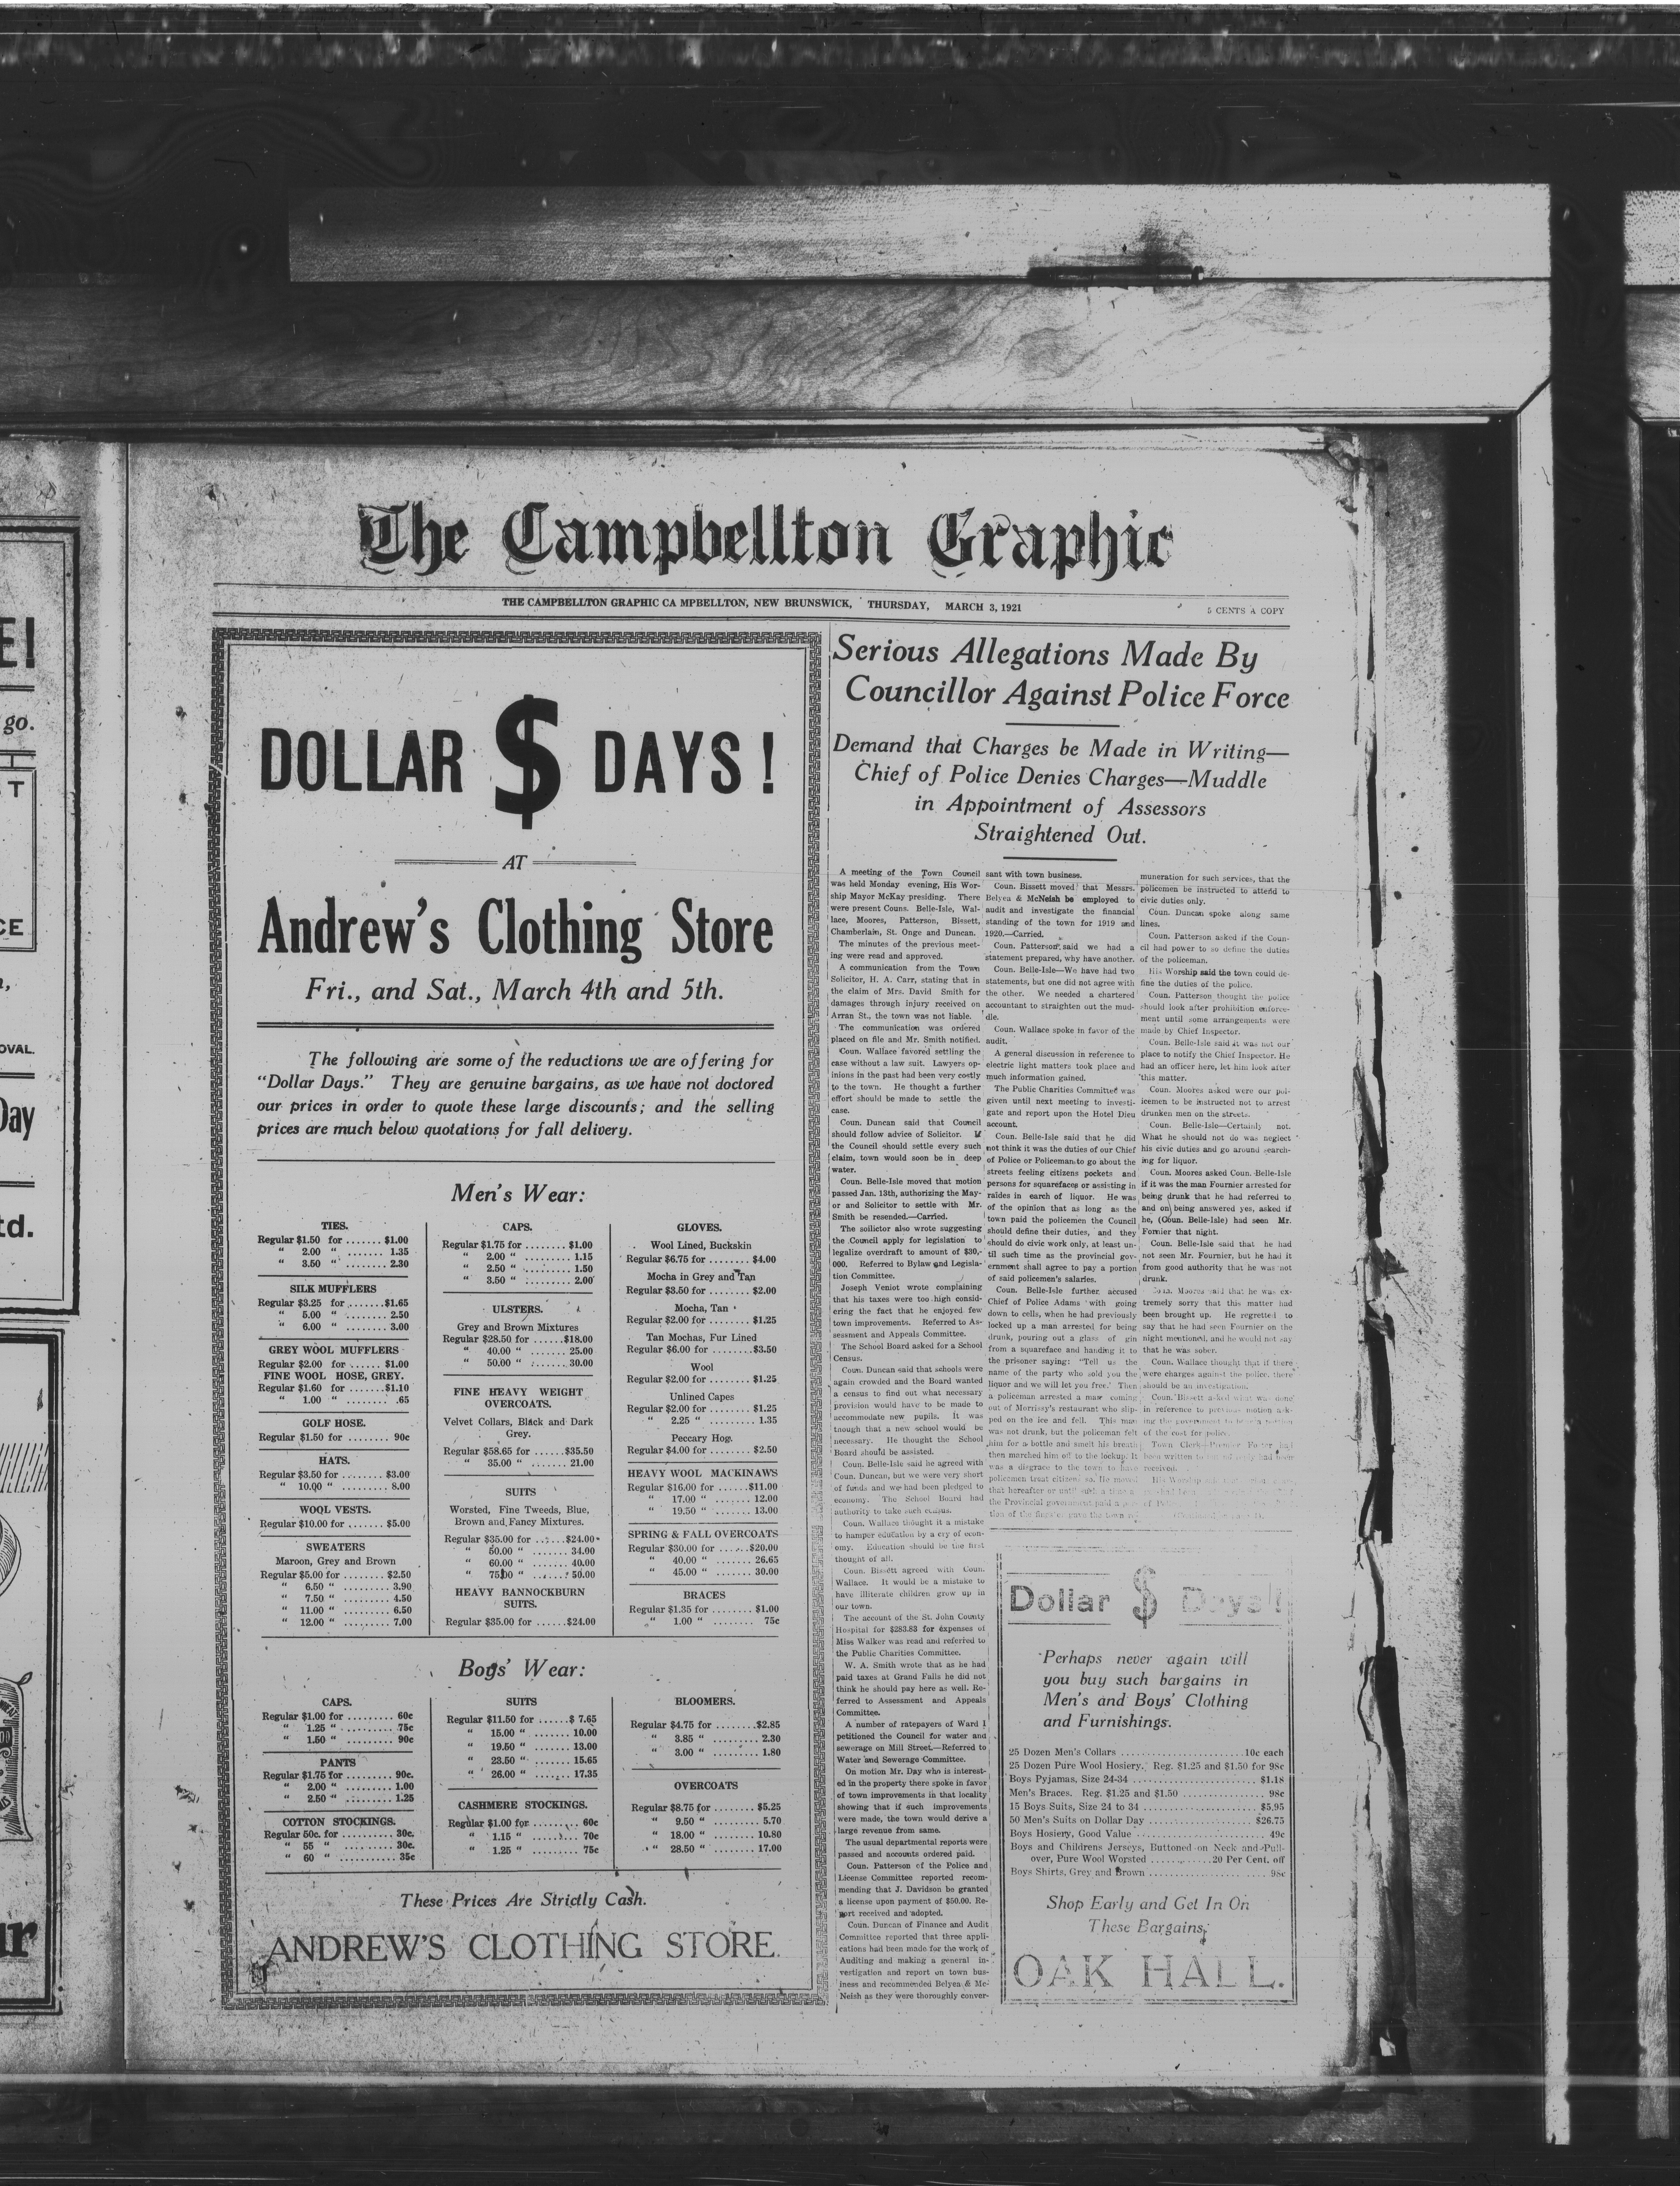 E!
go.
T
CE
OVAL.
Day
td.
ur
The Campbellton Graphic
THE CAMPBELLTON GRAPHIC CA MPBELLTON, NEW BRUNSWICK, THURSDAY, MARCH 3, 1921
5 CENTS A COPY
DOLLAR $ DAYS!
AT
Andrew's Clothing Store
Fri., and Sat., March 4th and 5th.
The following are some of the reductions we are offering for
"Dollar Days." They are genuine bargains, as we have not doctored
our prices in order to quote these large discounts; and the selling
prices are much below quotations for fall delivery.
Men's Wear:
TIES.
Regular $1.50 for ....... $1.00
" 2.00 " ....... 1.35
" 3.50 " ........ 2.30
SILK MUFFLERS
Regular $3.25 for .......$1.65
" 5.00 " ........ 2.50
" 6.00 " ........ 3.00
GREY WOOL MUFFLERS
Regular $2.00 for ...... $1.00
FINE WOOL HOSE, GREY.
Regular $1.60 for .......$1.10
" 1.00 " ........ .65
GOLF HOSE.
Regular $1.50 for ........ 90c
HATS.
Regular $3.50 for ........ $3.00
" 10.00 " ........ 8.00
WOOL VESTS.
Regular $10.00 for ....... $5.00
SWEATERS
Maroon, Grey and Brown
Regular $5.00 for ........ $2.50
" 6.50 " ......... 3.90
" 7.50 " ......... 4.50
" 11.00 " ......... 6.50
" 12.00 " ......... 7.00
CAPS.
Regular $1.75 for ........ $1.00
" 2.00 " ......... 1.15
" 2.50 " ......... 1.50
" 3.50 " ......... 2.00
ULSTERS.
Grey and Brown Mixtures
Regular $28.50 for ......$18.00
" 40.00 " ....... 25.00
" 50.00 " ....... 30.00
FINE HEAVY WEIGHT
OVERCOATS.
Velvet Collars, Black and Dark
Grey.
Regular $58.65 for ......$35.50
" 35.00 " ....... 21.00
SUITS
Worsted, Fine Tweeds, Blue,
Brown and Fancy Mixtures.
Regular $35.00 for ......$24.00
" 50.00 " ....... 34.00
" 60.00 " ....... 40.00
" 75.00 " ....... 50.00
HEAVY BANNOCKBURN
SUITS.
Regular $35.00 for ......$24.00
GLOVES.
Wool Lined, Buckskin
Regular $6.75 for ........ $4.00
Mocha in Grey and Tan
Regular $3.50 for ........ $2.00
Mocha, Tan
Regular $2.00 for ........ $1.25
Tan Mochas, Fur Lined
Regular $6.00 for ........$3.50
Wool
Regular $2.00 for ........ $1.25
Unlined Capes
Regular $2.00 for ........ $1.25
" 2.25 " ......... 1.35
Peccary Hog.
Regular $4.00 for ........ $2.50
HEAVY WOOL MACKINAWS
Regular $16.00 for ......$11.00
" 17.00 " ....... 12.00
" 19.50 " ....... 13.00
SPRING & FALL OVERCOATS
Regular $30.00 for ......$20.00
" 40.00 " ....... 26.65
" 45.00 " ....... 30.00
BRACES
Regular $1.35 for ........ $1.00
" 1.00 " ........ 75c
Boys' Wear:
CAPS.
Regular $1.00 for ......... 60c
" 1.25 " .......... 75c
" 1.50 " .......... 90c
PANTS
Regular $1.75 for ......... 90c.
" 2.00 " .......... 1.00
" 2.50 " .......... 1.25
COTTON STOCKINGS.
Regular 50c. for .......... 30c.
" 55 " ........... 30c.
" 60 " ........... 35c
SUITS
Regular $11.50 for ......$ 7.65
" 15.00 " ....... 10.00
" 19.50 " ....... 13.00
" 23.50 " ....... 15.65
" 26.00 " ....... 17.35
CASHMERE STOCKINGS.
Regular $1.00 for ........ 60c
" 1.15 " ......... 70c
" 1.25 " ......... 75c
BLOOMERS.
Regular $4.75 for ........$2.85
" 3.85 " ......... 2.30
" 3.00 " ......... 1.80
OVERCOATS
Regular $8.75 for ........ $5.25
" 9.50 " ......... 5.70
" 18.00 " ........ 10.80
" 28.50 " ........ 17.00
These Prices Are Strictly Cash.
ANDREW'S CLOTHING STORE.
Serious Allegations Made By
Councillor Against Police Force
Demand that Charges be Made in Writing—
Chief of Police Denies Charges—Muddle
in Appointment of Assessors
Straightened Out.
A meeting of the Town Council
was held Monday evening, His Wor-
ship Mayor McKay presiding. There
were present Couns. Belle-Isle, Wal-
lace, Moores, Patterson, Bissett,
Chamberlain, St. Onge and Duncan.
The minutes of the previous meet-
ing were read and approved.
A communication from the Town
Solicitor, H. A. Carr, stating that in
the claim of Mrs. David Smith for
damages through injury received on
Arran St., the town was not liable.
The communication was ordered
placed on file and Mr. Smith notified.
Coun. Wallace favored settling the
case without a law suit. Lawyers op-
inions in the past had been very costly
to the town. He thought a further
effort should be made to settle the
case.
Coun. Duncan said that Council
should follow advice of Solicitor. If
the Council should settle every such
claim, town would soon be in deep
water.
Coun. Belle-Isle moved that motion
passed Jan. 13th, authorizing the May-
or and Solicitor to settle with Mr.
Smith be resended.—Carried.
The soilictor also wrote suggesting
the Council apply for legislation to
legalize overdraft to amount of $30,-
000. Referred to Bylaw and Legisla-
tion Committee.
Joseph Veniot wrote complaining
that his taxes were too high consid-
ering the fact that he enjoyed few
town improvements. Referred to As-
sessment and Appeals Committee.
The School Board asked for a School
Census.
Coun. Duncan said that schools were
again crowded and the Board wanted
a census to find out what necessary
provision would have to be made to
accommodate new pupils. It was
tnough that a new school would be
necessary. He thought the School
Board should be assisted.
Coun. Belle-Isle said he agreed with
Coun. Duncan, but we were very short
of funds and we had been pledged to
economy. The School Board had
authority to take such census.
Coun. Wallace thought it a mistake
to hamper education by a cry of econ-
omy. Education should be the first
thought of all.
Coun. Bissett agreed with Coun.
Wallace. It would be a mistake to
have illiterate children grow up in
our town.
The account of the St. John County
Hospital for $283.83 for expenses of
Miss Walker was read and referred to
the Public Charities Committee.
W. A. Smith wrote that as he had
paid taxes at Grand Falls he did not
think he should pay here as well. Re-
ferred to Assessment and Appeals
Committee.
A number of ratepayers of Ward 1
petitioned the Council for water and
sewerage on Mill Street.—Referred to
Water and Sewerage Committee.
On motion Mr. Day who is interest-
ed in the property there spoke in favor
of town improvements in that locality
showing that if such improvements
were made, the town would derive a
large revenue from same.
The usual departmental reports were
passed and accounts ordered paid.
Coun. Patterson of the Police and
License Committee reported recom-
mending that J. Davidson be granted
a license upon payment of $50.00. Re-
port received and adopted.
Coun. Duncan of Finance and Audit
Committee reported that three appli-
cations had been made for the work of
Auditing and making a general in-
vestigation and report on town bus-
iness and recommended Belyea & Mc-
Neish as they were thoroughly conver-
sant with town business.
Coun. Bissett moved that Messrs.
Belyea & McNeish be employed to
audit and investigate the financial
standing of the town for 1919 and
1920.—Carried.
Coun. Patterson said we had a
statement prepared, why have another.
Coun. Belle-Isle—We have had two
statements, but one did not agree with
the other. We needed a chartered
accountant to straighten out the mud-
dle.
Coun. Wallace spoke in favor of the
audit.
A general discussion in reference to
electric light matters took place and
much information gained.
The Public Charities Committee was
given until next meeting to investi-
gate and report upon the Hotel Dieu
account.
Coun. Belle-Isle said that he did
not think it was the duties of our Chief
of Police or Policeman to go about the
streets feeling citizens pockets and
persons for squarefaces or assisting in
raides in earch of liquor. He was
of the opinion that as long as the
town paid the policemen the Council
should define their duties, and they
should do civic work only, at least un-
til such time as the provincial gov-
ernment shall agree to pay a portion
of said policemen's salaries.
Coun. Belle-Isle further accused
Chief of Police Adams with going
down to cells, when he had previously
locked up a man arrested for being
drunk, pouring out a glass of gin
from a squareface and handing it to
the prisoner saying: "Tell us the
name of the party who sold you the
liquor and we will let you free." Then
a policeman arrested a maw coming
out of Morrissy's restaurant who slip-
ped on the ice and fell. This man
was not drunk, but the policeman felt
him for a bottle and smelt his breath
then marched him off to the lockup. It
was a disgrace to the town to have
policemen treat citizens so. He moved
that hereafter or until such a time a
the Provincial government paid a
tion of the
muneration for such services, that the
policemen be instructed to attend to
civic duties only.
Coun. Duncan spoke along same
lines.
Coun. Patterson asked if the Coun-
cil had power to so define the duties
of the policeman.
His Worship said the town could de-
fine the duties of the police.
Coun. Patterson thought the police
should look after prohibition enforce-
ment until some arrangements were
made by Chief Inspector.
Coun. Belle-Isle said it was not our
place to notify the Chief Inspector. He
had an officer here, let him look after
this matter.
Coun. Moores asked were our pol-
icemen to be instructed not to arrest
drunken men on the streets.
Coun. Belle-Isle—Certainly not.
What he should not do was neglect
his civic duties and go around search-
ing for liquor.
Coun. Moores asked Coun. Belle-Isle
if it was the man Fournier arrested for
being drunk that he had referred to
and on being answered yes, asked if
he, (Coun. Belle-Isle) had seen Mr.
Fornier that night.
Coun. Belle-Isle said that he had
not seen Mr. Fournier, but he had it
from good authority that he was not
drunk.
Coun. Moores said that he was ex-
tremely sorry that this matter had
been brought up. He regretted to
say that he had seen Fournier on the
night mentioned, and he would not say
that he was sober.
Coun. Wallace thought that if there
were charges against the police, there
should be an investigation.
Coun. Bissett asked what was done
in reference to previous motion ask-
ing the government to
of the cost for police.
Town Clerk—Premier Foster had
been written to
received.
His Worship
Dollar $ Days!
Perhaps never again will
you buy such bargains in
Men's and Boys' Clothing
and Furnishings.
25 Dozen Men's Collars ........................ 10c each
25 Dozen Pure Wool Hosiery. Reg. $1.25 and $1.50 for 98c
Boys Pyjamas, Size 24-34 ........................ $1.18
Men's Braces. Reg. $1.25 and $1.50 ................ 98c
15 Boys Suits, Size 24 to 34 ...................... $5.95
50 Men's Suits on Dollar Day ..................... $26.75
Boys Hosiery, Good Value ........................ 49c
Boys and Childrens Jerseys, Buttoned on Neck and Pull-
over, Pure Wool Worsted ............20 Per Cent. off
Boys Shirts, Grey and Brown ...................... 98c
Shop Early and Get In On
These Bargains.
OAK HALL.